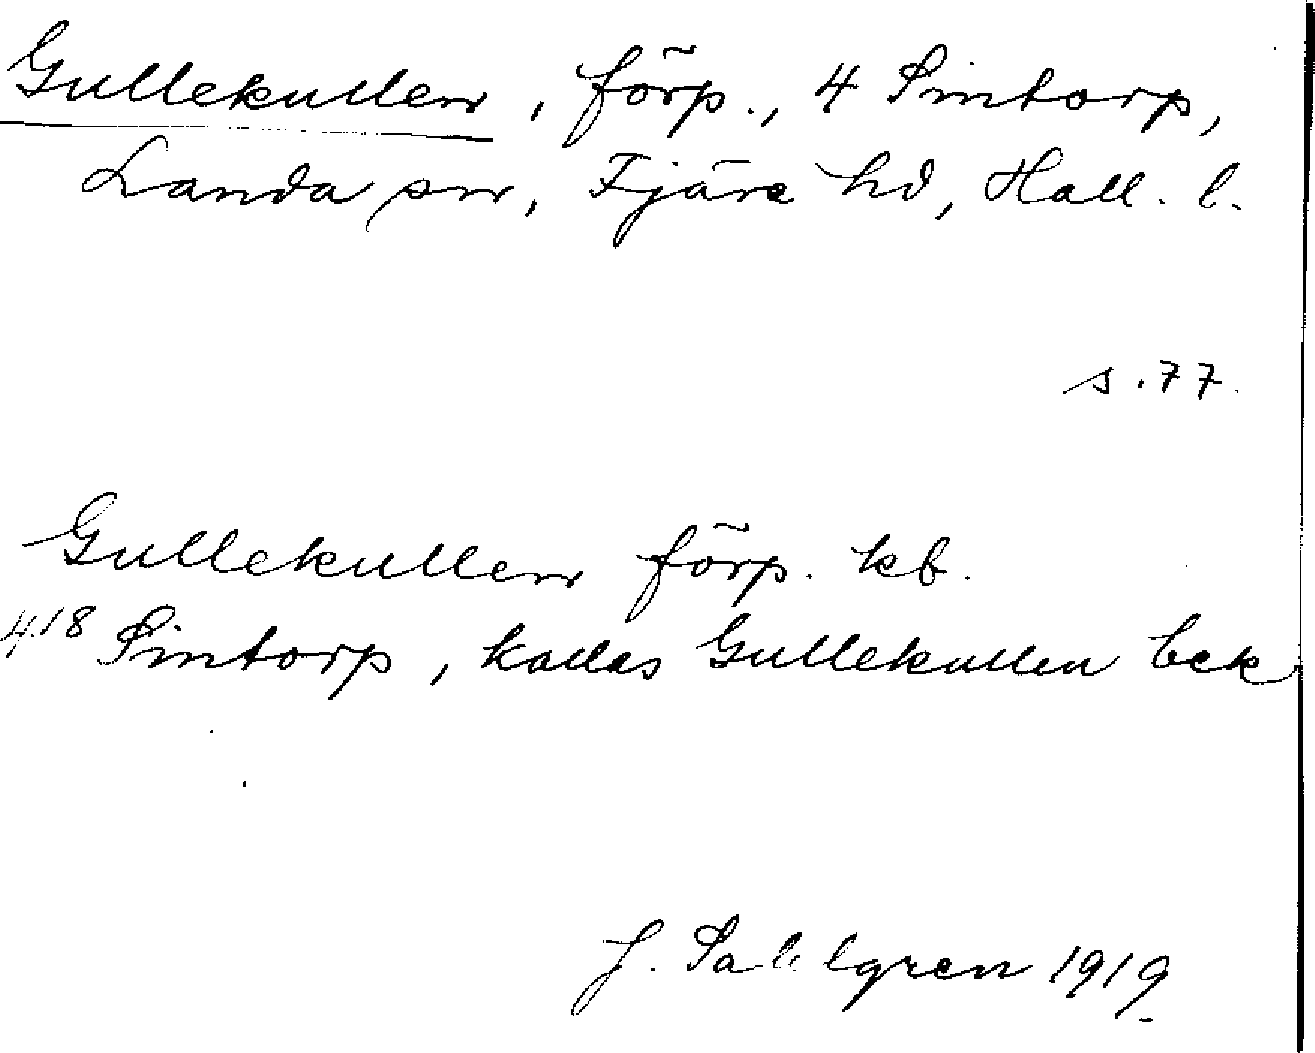 Gullekullen, förp., 4 Sintorp,
Landa sn, Fjäre hd, Hall. l.
s. 77.
Gullekullen förp. kb.
4:18 Sintorp, kallas Gullekullen bek
J. Sahlgren 1919